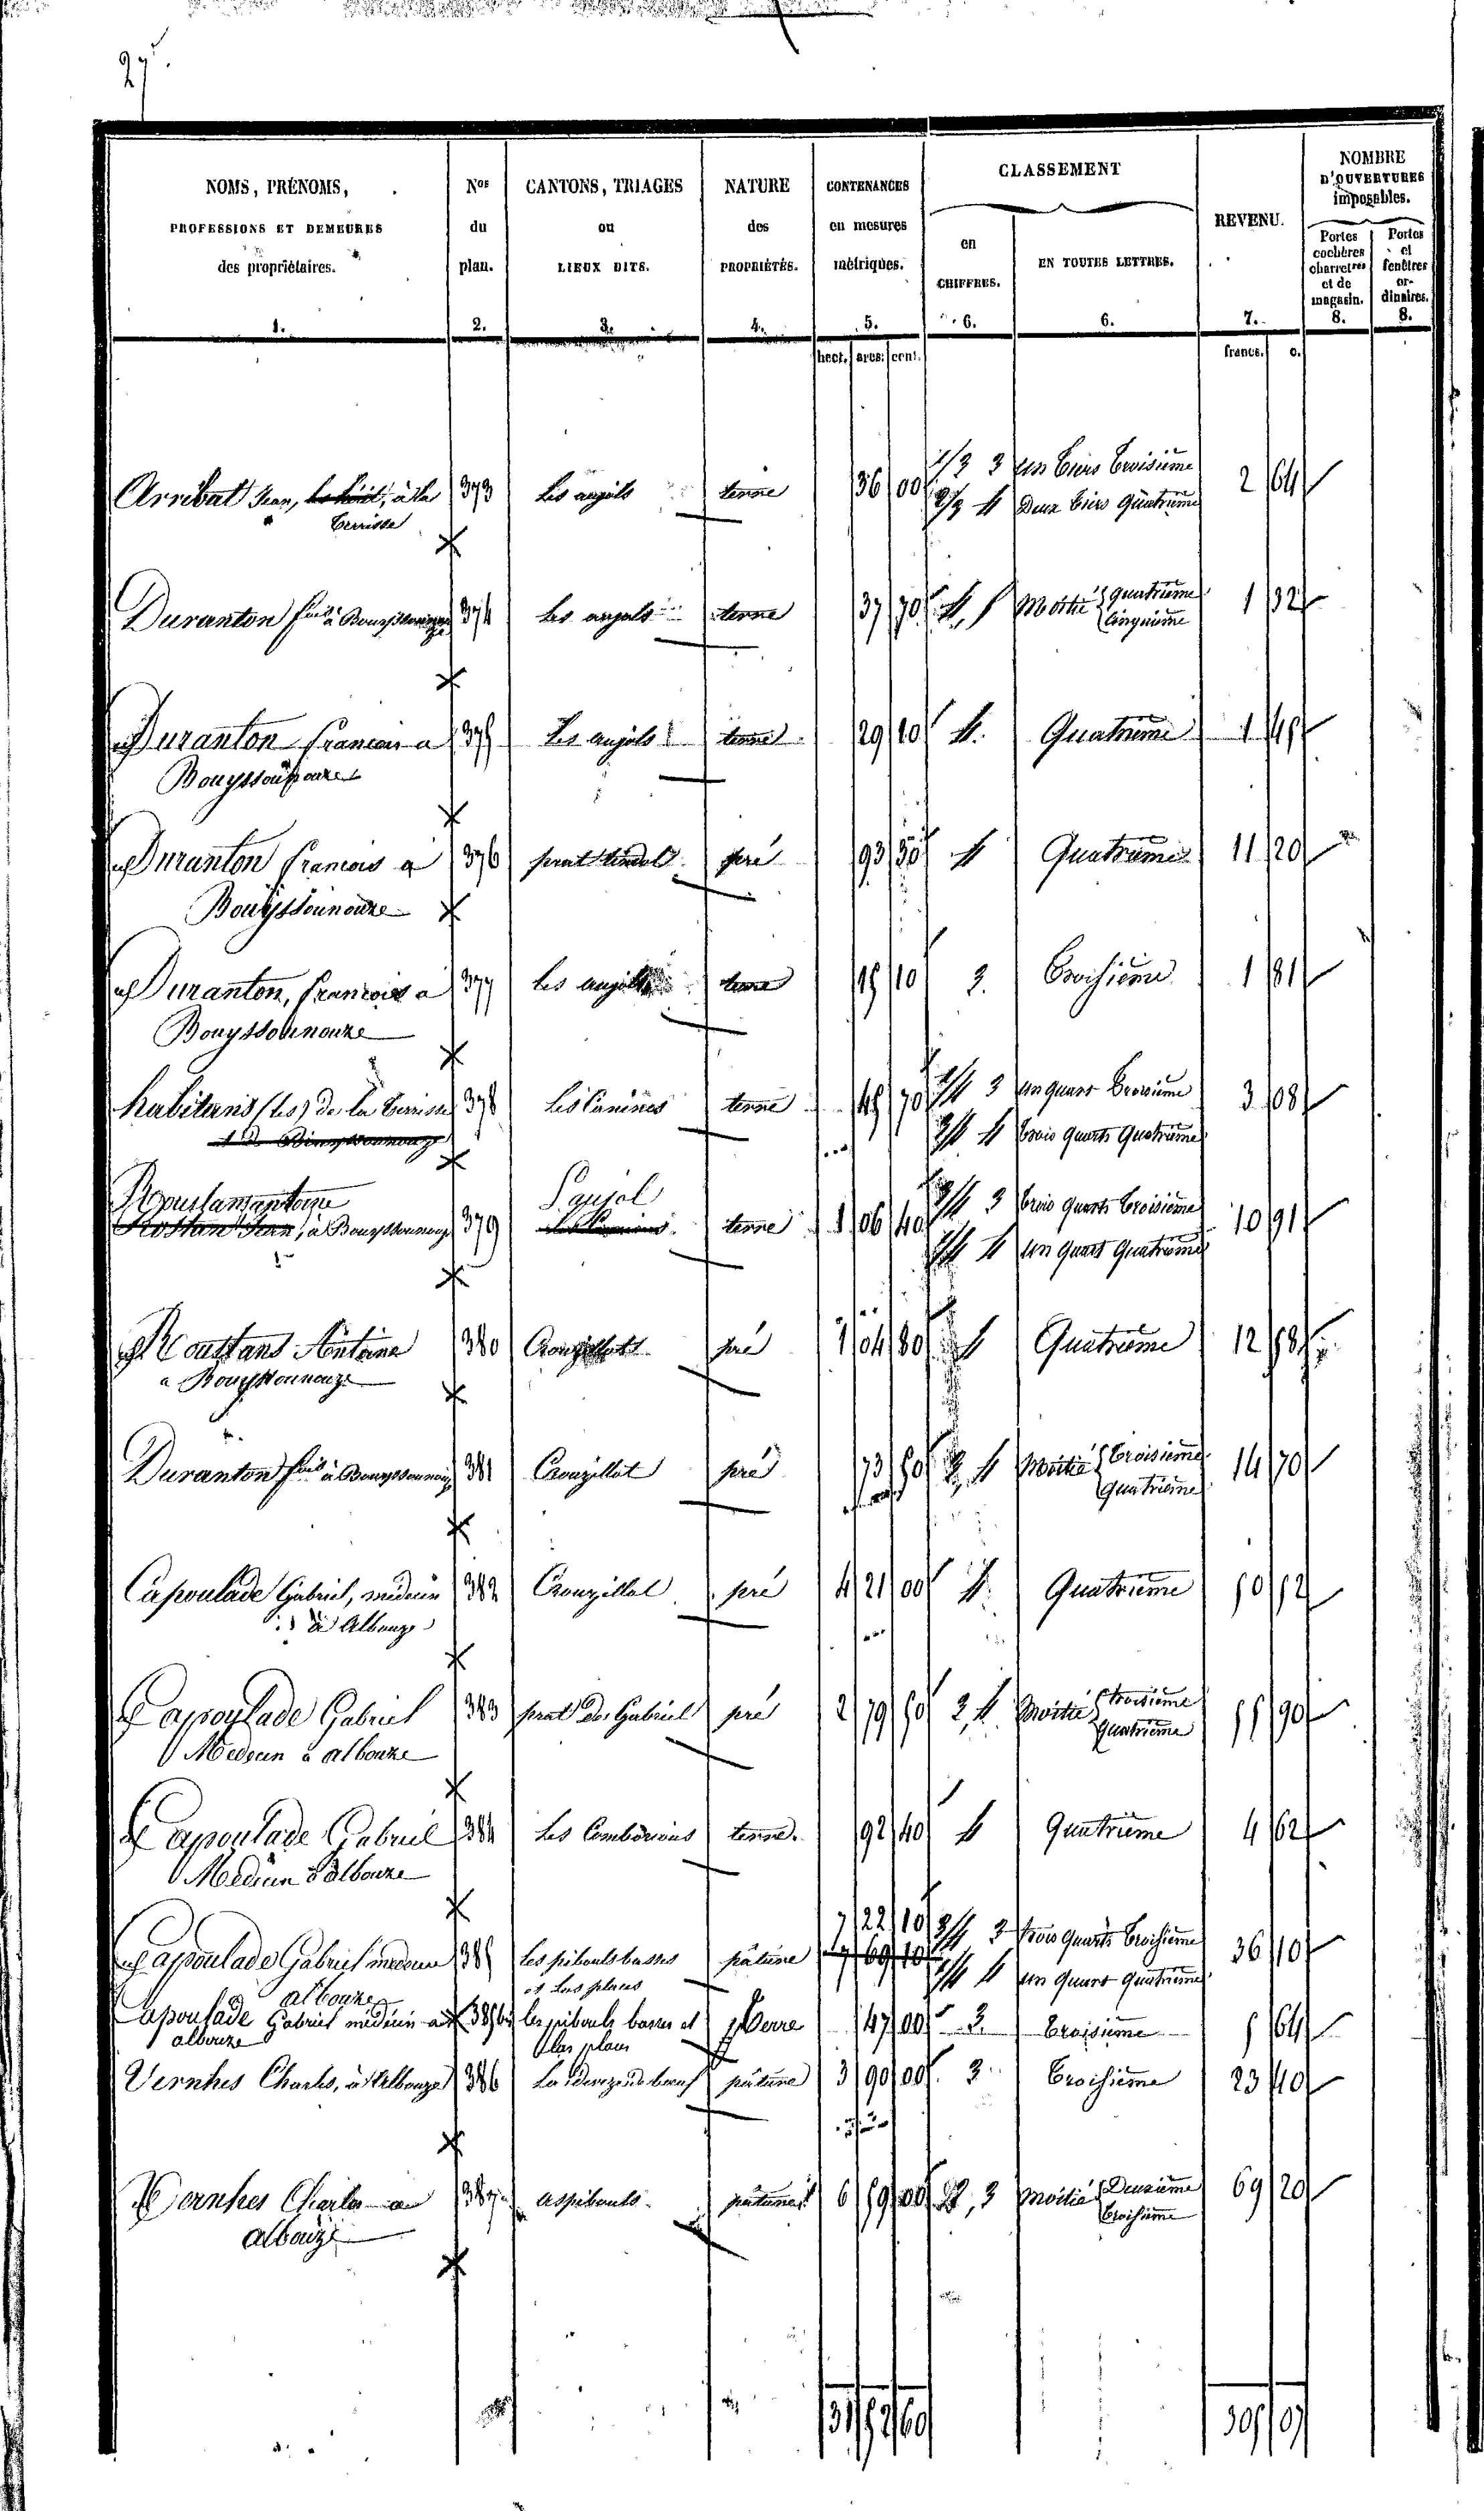 27
NOMS, PRÉNOMS,
PROFESSIONS ET DEMEURES
des propriétaires.
1.
Nos
du
plan.
2.
CANTONS, TRIAGES
ou
LIEUX DITS.
3.
NATURE
des
PROPRIÉTÉS.
4.
CONTENANCES
en mesures
métriques.
5.
CLASSEMENT
en
CHIFFRES.
6.
EN TOUTES LETTRES.
6.
REVENU.
7.
NOMBRE
D'OUVERTURES
imposables.
Portes
cochères
charretres
et de
magasin.
8.
Portes
et
fenêtres
or-
dinaires.
8.
hect. ares. cent.
francs. c.
Arribat Jean, à la 373 Les anjols terre 36 00 1/3 3 un tiers troisième 2 64
Terrisse 2/3 4 Deux tiers Quatrième
Duranton fois à Bouyssounouze 374 Les anjols terre 37 70 4, 5 Moitié quatrième 1 32
cinquième
Duranton francois a 375 Les anjols terre 29 10 4. Quatrième 1 45
Bouyssounouze
Duranton francois a 376 prat pré 93 30 4 Quatrième 11 20
Bouyssounouze
Duranton, francois a 377 Les anjols terre 15 10 3. Troisième 1 81
Bouyssounouze
habitans (les) de la Terrisse 378 Les Canines terre 45 70 1/4 3 un quart troisième 3 08
3/4 4 trois quarts Quatrième
Roustan antoine Paujol
à Bouyssounouze 379 terre 1 06 40 3/4 3 trois quarts troisième 10 91
1/4 4 un quart Quatrième
Roustans Antoine 380 pré 1 04 80 4 Quatrième 12 58
a Bouyssounouze
Duranton fois à Bouyssounouze 381 Crouzillat pré 73 50 3, 4 Moitié troisième 14 70
quatrième
Capoulade Gabriel, médecin 382 Crouzillat pré 4 21 00 4. Quatrième 50 52
à Albouze
Capoulade Gabriel 383 prat de Gabriel pré 2 79 50 3, 4 Moitié troisième 55 90
Medecin a albouze quatrième
Capoulade Gabriel 384 Les terre 92 40 4 Quatrième 4 62
Medecin a albouze
7 22 10
Capoulade Gabriel medecin 385 Les pibouls basses pâture 7 69 10 3/4 3 trois quarts troisième 36 10
albouze et Las places 1/4 4 un quart quatrième
Capoulade Gabriel médecin a 385 bis les pibouls basses et terre 47 00 3. troisième 5 64
albouze las places
Vernhes Charles, à Albouze 386 pâture 3 90 00 3 troisième 23 40
Vernhes Charles a 387 aspibouls pâture 6 59 00 2, 3 Moitié Deuxième 69 20
albouze troisième
31 52 60 305 07